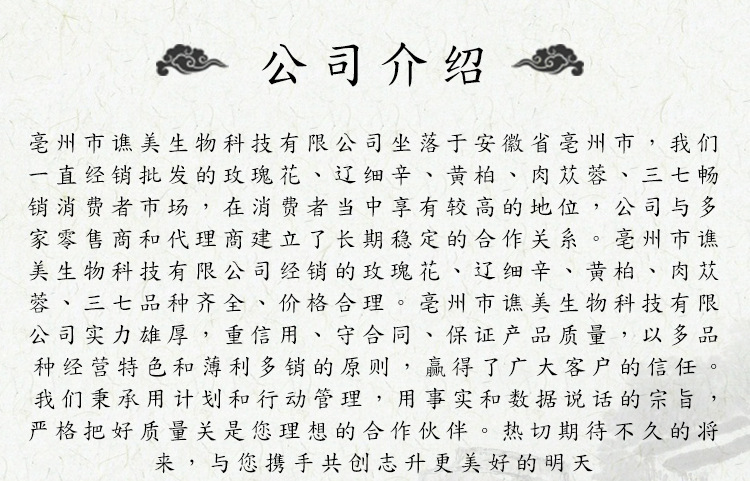 公司介绍
亳州市谯美生物科技有限公司坐落于安徽省亳州市，我们
一直经销批发的玫瑰花、辽细辛、黄柏、肉苁蓉、三七畅
销消费者市场，在消费者当中享有较高的地位，公司与多
家零售商和代理商建立了长期稳定的合作关系。亳州市谯
美生物科技有限公司经销的玫瑰花、辽细辛、黄柏、肉苁
蓉、三七品种齐全、价格合理。亳州市谯美生物科技有限
公司实力雄厚，重信用、守合同、保证产品质量，以多品
种经营特色和薄利多销的原则，赢得了广大客户的信任。
我们秉承用计划和行动管理，用事实和数据说话的宗旨，
严格把好质量关是您理想的合作伙伴。热切期待不久的将
来，与您携手共创志升更美好的明天